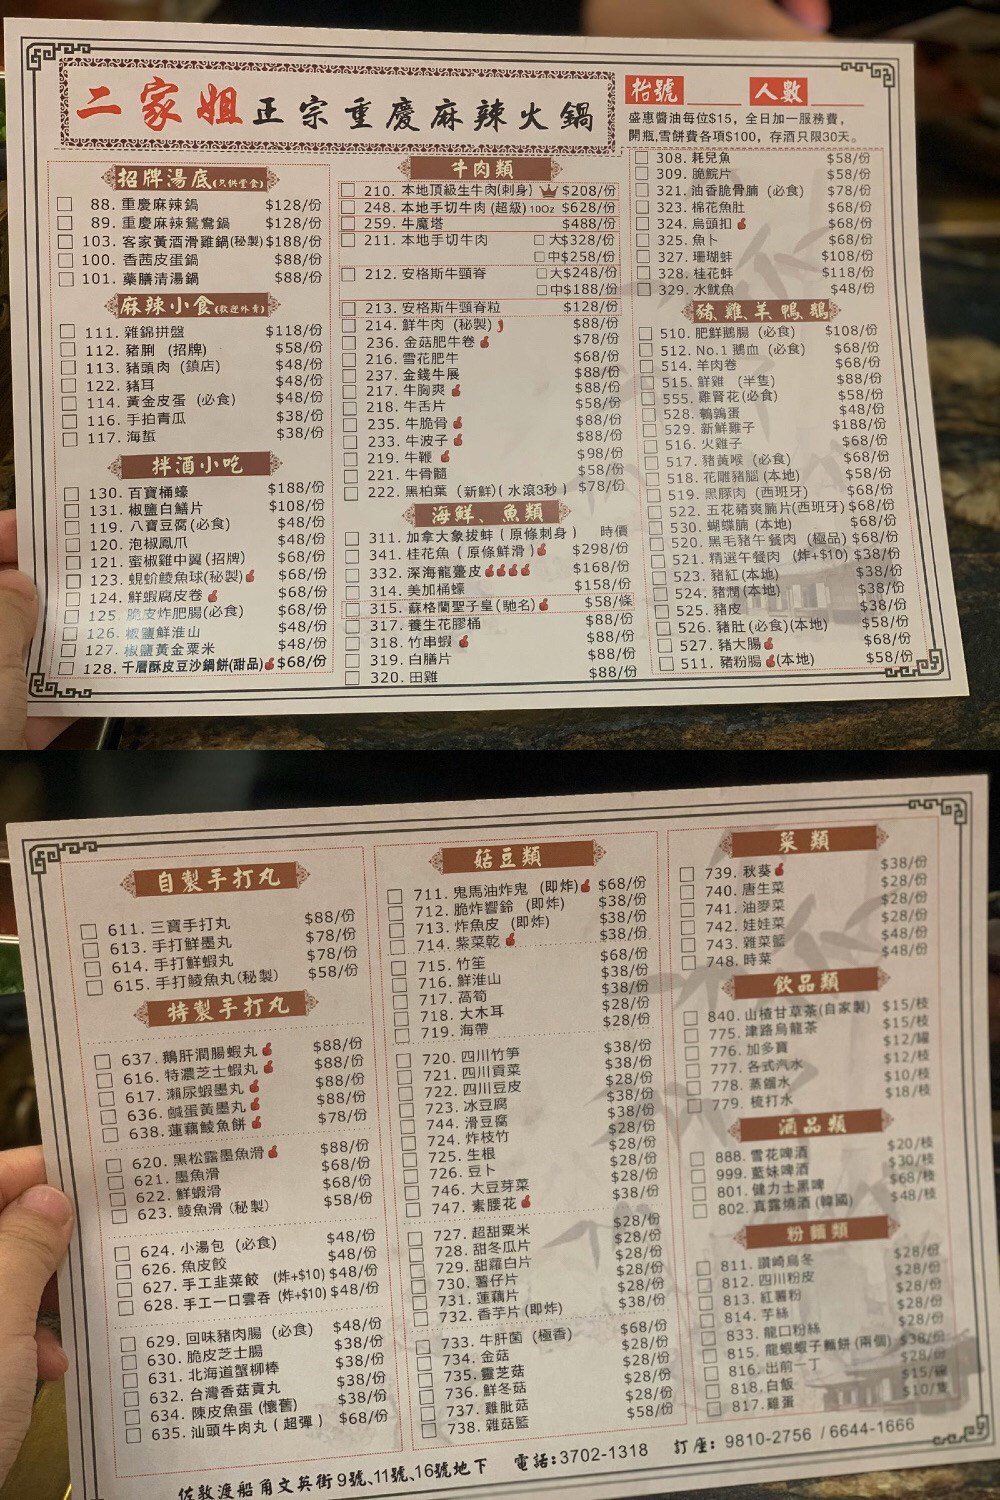 二家姐正宗重慶麻辣火鍋
枱號 人數
盛惠醬油每位$15，全日加一服務費，
開瓶,雪餅費各項$100，存酒只限30天。
招牌湯底(只供堂食)
88. 重慶麻辣鍋 $128/份
89. 重慶麻辣鴛鴦鍋 $128/份
103. 客家黃酒滑雞鍋(秘製) $188/份
100. 香茜皮蛋鍋 $88/份
101. 藥膳清湯鍋 $88/份
麻辣小食(歡迎外賣)
111. 雜錦拼盤 $118/份
112. 豬脷 (招牌) $58/份
113. 豬頭肉 (鎮店) $48/份
122. 豬耳 $48/份
114. 黃金皮蛋 (必食) $48/份
116. 手拍青瓜 $38/份
117. 海蜇 $38/份
拌酒小吃
130. 百寶桶蠔 $188/份
131. 椒鹽白鱔片 $108/份
119. 八寶豆腐(必食) $48/份
120. 泡椒鳳爪 $48/份
121. 蜜椒雞中翼(招牌) $68/份
123. 蜆蚧鯪魚球(秘製) $68/份
124. 鮮蝦腐皮卷 $68/份
125. 脆皮炸肥腸(必食) $68/份
126. 椒鹽鮮淮山 $48/份
127. 椒鹽黃金粟米 $48/份
128. 千層酥皮豆沙鍋餅(甜品) $68/份
牛肉類
210. 本地頂級生牛肉(刺身) $208/份
248. 本地手切牛肉 (超級) 10Oz $628/份
259. 牛魔塔 $488/份
211. 本地手切牛肉 大$328/份
中$258/份
212. 安格斯牛頸脊 大$248/份
中$188/份
213. 安格斯牛頸脊粒 $128/份
214. 鮮牛肉 (秘製) $88/份
236. 金菇肥牛卷 $78/份
216. 雪花肥牛 $68/份
237. 金錢牛展 $88/份
217. 牛胸爽 $88/份
218. 牛舌片 $58/份
235. 牛脆骨 $88/份
233. 牛波子 $88/份
219. 牛鞭 $98/份
221. 牛骨髓 $58/份
222. 黑柏葉 (新鮮)(水滾3秒) $78/份
海鮮、魚類
311. 加拿大象拔蚌 (原條刺身) 時價
341. 桂花魚 (原條鮮滑) $298/份
332. 深海龍躉皮 $168/份
314. 美加桶蠔 $158/份
315. 蘇格蘭聖子皇(馳名) $58/條
317. 養生花膠桶 $88/份
318. 竹串蝦 $88/份
319. 白膳片 $88/份
320. 田雞 $88/份
308. 耗兒魚 $58/份
309. 脆鯇片 $58/份
321. 油香脆骨腩 (必食) $78/份
323. 棉花魚肚 $68/份
324. 烏頭扣 $68/份
325. 魚卜 $68/份
327. 珊瑚蚌 $108/份
328. 桂花蚌 $118/份
329. 水魷魚 $48/份
豬、雞、羊、鴨、鵝
510. 肥鮮鵝腸 (必食) $108/份
512. No.1 鵝血 (必食) $68/份
514. 羊肉卷 $68/份
515. 鮮雞 (半隻) $88/份
555. 雞腎花(必食) $58/份
528. 鵪鶉蛋 $48/份
529. 新鮮雞子 $188/份
516. 火雞子 $68/份
517. 豬黃喉 (必食) $68/份
518. 花雕豬腦 (本地) $58/份
519. 黑豚肉 (西班牙) $68/份
522. 五花豬爽腩片(西班牙) $68/份
530. 蝴蝶腩 (本地) $68/份
520. 黑毛豬午餐肉 (極品) $68/份
521. 精選午餐肉 (炸+$10) $38/份
523. 豬紅(本地) $38/份
524. 豬潤(本地) $38/份
525. 豬皮 $38/份
526. 豬肚(必食)(本地) $58/份
527. 豬大腸 $68/份
511. 豬粉腸 (本地) $58/份
自製手打丸
611. 三寶手打丸 $88/份
613. 手打鮮墨丸 $78/份
614. 手打鮮蝦丸 $78/份
615. 手打鯪魚丸(秘製) $58/份
特製手打丸
637. 鵝肝潤腸蝦丸 $88/份
616. 特濃芝士蝦丸 $88/份
617. 瀨尿蝦墨丸 $88/份
636. 鹹蛋黃墨丸 $88/份
638. 蓮藕鯪魚餅 $78/份
620. 黑松露墨魚滑 $88/份
621. 墨魚滑 $68/份
622. 鮮蝦滑 $68/份
623. 鯪魚滑 (秘製) $58/份
624. 小湯包 (必食) $48/份
626. 魚皮餃 $48/份
627. 手工韭菜餃 (炸+$10) $48/份
628. 手工一口雲吞 (炸+$10) $48/份
629. 回味豬肉腸 (必食) $48/份
630. 脆皮芝士腸 $38/份
631. 北海道蟹柳棒 $38/份
632. 台灣香菇貢丸 $38/份
634. 陳皮魚蛋 (懷舊) $38/份
635. 汕頭牛肉丸 (超彈) $68/份
菇豆類
711. 鬼馬油炸鬼 (即炸) $68/份
712. 脆炸響鈴 (即炸) $38/份
713. 炸魚皮 (即炸) $38/份
714. 紫菜乾 $38/份
715. 竹笙 $68/份
716. 鮮淮山 $38/份
717. 萵筍 $38/份
718. 大木耳 $28/份
719. 海帶 $28/份
720. 四川竹笋 $38/份
721. 四川貢菜 $38/份
722. 四川豆皮 $38/份
723. 冰豆腐 $38/份
744. 滑豆腐 $38/份
724. 炸枝竹 $28/份
725. 生根 $28/份
726. 豆卜 $28/份
746. 大豆芽菜 $28/份
747. 素腰花 $38/份
727. 超甜粟米 $28/份
728. 甜冬瓜片 $28/份
729. 甜蘿白片 $28/份
730. 薯仔片 $28/份
731. 蓮藕片 $28/份
732. 香芋片(即炸) $38/份
733. 牛肝菌 (極香) $68/份
734. 金菇 $28/份
735. 靈芝菇 $28/份
736. 鮮冬菇 $28/份
737. 雞肶菇 $28/份
738. 雜菇籃 $58/份
菜類
739. 秋葵 $38/份
740. 唐生菜 $28/份
741. 油麥菜 $28/份
742. 娃娃菜 $28/份
743. 雜菜籃 $48/份
748. 時菜 $48/份
飲品類
840. 山楂甘草茶(自家製) $15/枝
775. 津路烏龍茶 $15/枝
776. 加多寶 $12/罐
777. 各式汽水 $12/枝
778. 蒸餾水 $10/枝
779. 梳打水 $18/枝
酒品類
888. 雪花啤酒 $20/枝
999. 藍妹啤酒 $30/枝
801. 健力士黑啤 $68/枝
802. 真露燒酒 (韓國) $48/枝
粉麵類
811. 讚崎烏冬 $28/份
812. 四川粉皮 $28/份
813. 紅薯粉 $28/份
814. 芋絲 $28/份
833. 龍口粉絲 $28/份
815. 龍蝦蝦子麵餅 (兩個) $38/份
816. 出前一丁 $28/份
818. 白飯 $15/碗
817. 雞蛋 $10/隻
佐敦渡船角文英街9號、11號、16號地下 電話:3702-1318 訂座: 9810-2756 / 6644-1666